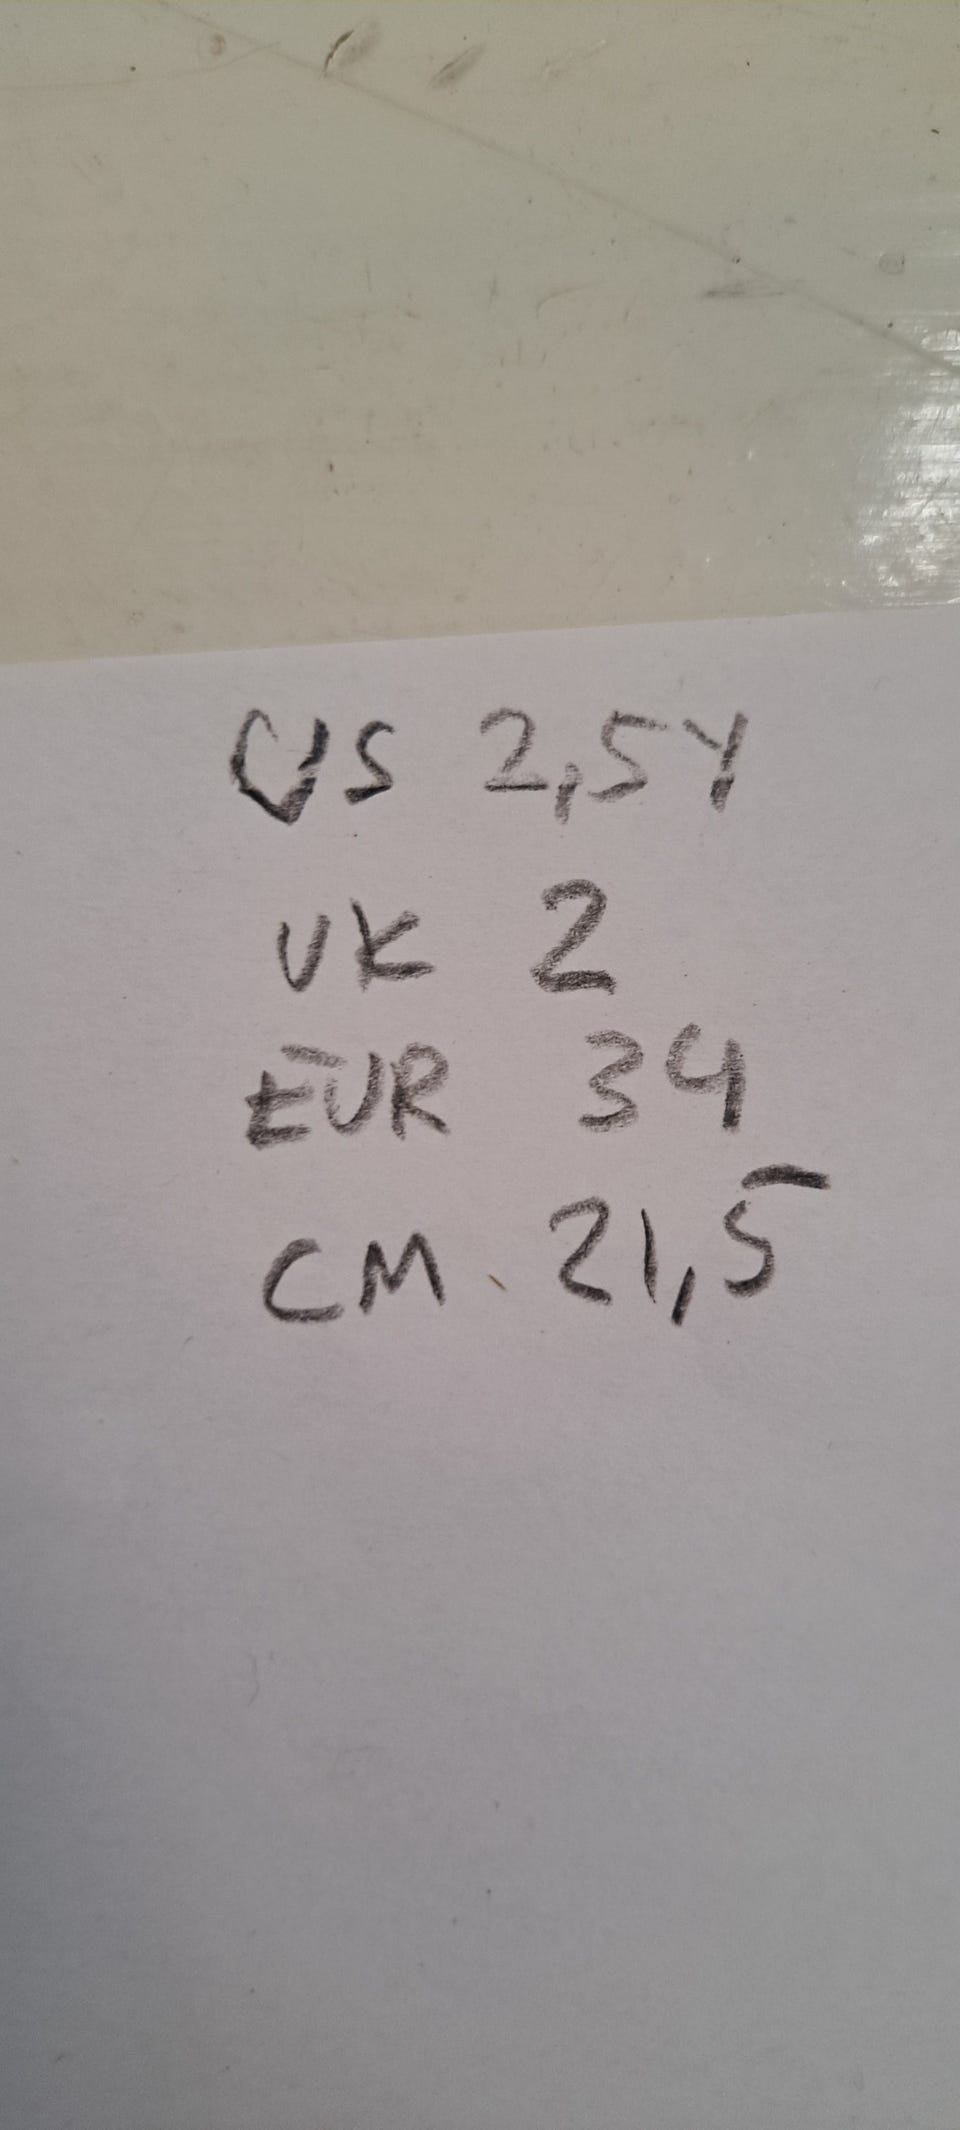 US 2,5Y
UK 2
EUR 34
CM 21,5